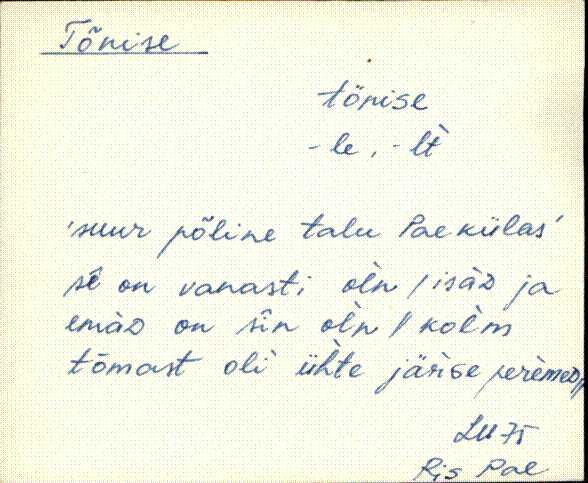 Tõnise
tönise
-le, -lt̀
'suur põline talu Paekülas'
sê on vanasti ol̀n / isäD ja
emàD on sîn ol̀n // kol̀m
tõmast oli ühte järise perèmeD //
LU 75
Ris Pae